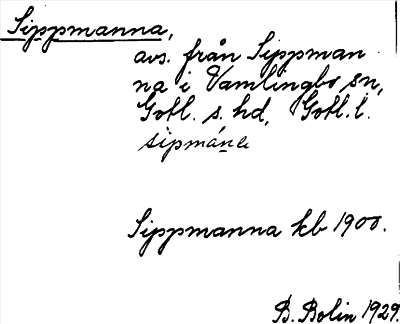 Sippmanna,
avs. från Sippman
na i Vamlingbo sn,
Gotl. s. hd, Gotl. l.
sipmána
Sippmanna kb 1900.
B. Bolin 1929.